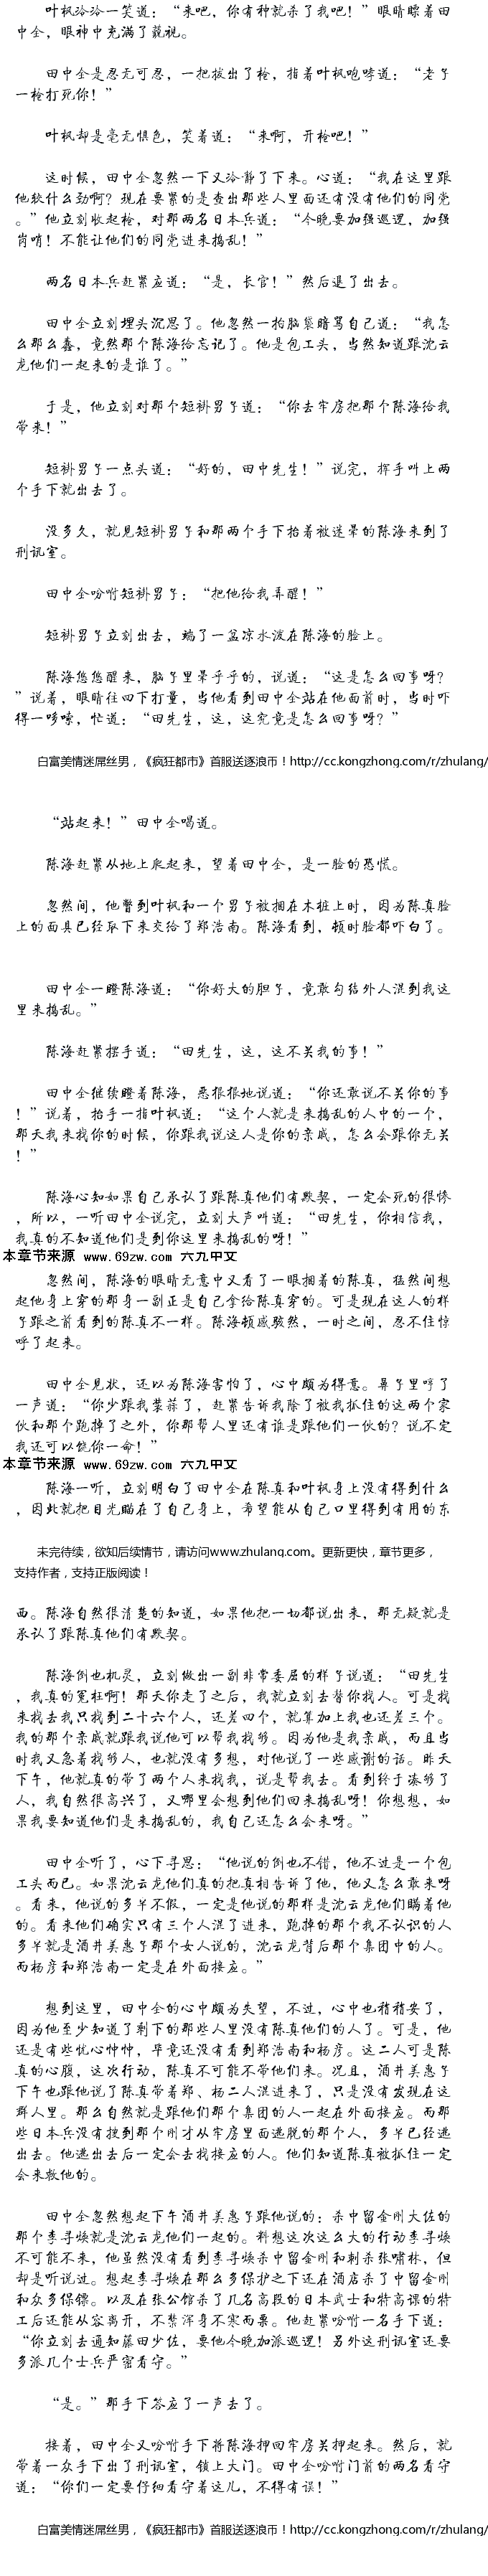 叶枫冷冷一笑道：“来吧，你有种就杀了我吧！”眼睛瞟着田
中全，眼神中充满了藐视。
田中全是忍无可忍，一把拔出了枪，指着叶枫咆哮道：“老子
一枪打死你！”
叶枫却是毫无惧色，笑着道：“来啊，开枪吧！”
这时候，田中全忽然一下又冷静了下来。心道：“我在这里跟
他较什么劲啊？现在要紧的是查出那些人里面还有没有他们的同党
。”他立刻收起枪，对那两名日本兵道：“今晚要加强巡逻，加强
岗哨！不能让他们的同党进来捣乱！”
两名日本兵赶紧应道：“是，长官！”然后退了出去。
田中全立刻埋头沉思了。他忽然一拍脑袋暗骂自己道：“我怎
么那么蠢，竟然那个陈海给忘记了。他是包工头，当然知道跟沈云
龙他们一起来的是谁了。”
于是，他立刻对那个短褂男子道：“你去牢房把那个陈海给我
带来！”
短褂男子一点头道：“好的，田中先生！”说完，挥手叫上两
个手下就出去了。
没多久，就见短褂男子和那两个手下抬着被迷晕的陈海来到了
刑讯室。
田中全吩咐短褂男子：“把他给我弄醒！”
短褂男子立刻出去，端了一盆凉水泼在陈海的脸上。
陈海悠悠醒来，脑子里晕乎乎的，说道：“这是怎么回事呀？
”说着，眼睛往四下打量，当他看到田中全站在他面前时，当时吓
得一哆嗦，忙道：“田先生，这，这究竟是怎么回事呀？”
白富美情迷屌丝男，《疯狂都市》首服送逐浪币！http://cc.kongzhong.com/r/zhulang/
“站起来！”田中全喝道。
陈海赶紧从地上爬起来，望着田中全，是一脸的恐慌。
忽然间，他瞥到叶枫和一个男子被捆在木桩上时，因为陈真脸
上的面具已经取下来交给了郑浩南。陈海看到，顿时脸都吓白了。
田中全一瞪陈海道：“你好大的胆子，竟敢勾结外人混到我这
里来捣乱。”
陈海赶紧摆手道：“田先生，这，这不关我的事！”
田中全继续瞪着陈海，恶狠狠地说道：“你还敢说不关你的事
！”说着，抬手一指叶枫道：“这个人就是来捣乱的人中的一个，
那天我来找你的时候，你跟我说这人是你的亲戚，怎么会跟你无关
！”
陈海心知如果自己承认了跟陈真他们有默契，一定会死的很惨
，所以，一听田中全说完，立刻大声叫道：“田先生，你相信我，
我真的不知道他们是到你这里来捣乱的呀！”
本章节来源 www.69zw.com 六九中文
忽然间，陈海的眼睛无意中又看了一眼捆着的陈真，猛然间想
起他身上穿的那身一副正是自己拿给陈真穿的。可是现在这人的样
子跟之前看到的陈真不一样。陈海顿感骇然，一时之间，忍不住惊
呼了起来。
田中全见状，还以为陈海害怕了，心中颇为得意。鼻子里哼了
一声道：“你少跟我装蒜了，赶紧告诉我除了被我抓住的这两个家
伙和那个跑掉了之外，你那帮人里还有谁是跟他们一伙的？说不定
我还可以饶你一命！”
本章节来源 www.69zw.com 六九中文
陈海一听，立刻明白了田中全在陈真和叶枫身上没有得到什么
，因此就把目光瞄在了自己身上，希望能从自己口里得到有用的东
未完待续，欲知后续情节，请访问www.zhulang.com。更新更快，章节更多，
支持作者，支持正版阅读！
西。陈海自然很清楚的知道，如果他把一切都说出来，那无疑就是
承认了跟陈真他们有默契。
陈海倒也机灵，立刻做出一副非常委屈的样子说道：“田先生
，我真的冤枉啊！那天你走了之后，我就立刻去替你找人。可是找
来找去我只找到二十六个人，还差四个，就算加上我也还差三个。
我的那个亲戚就跟我说他可以帮我找够。因为他是我亲戚，而且当
时我又急着找够人，也就没有多想，对他说了一些感谢的话。昨天
下午，他就真的带了两个人来找我，说是帮我去。看到终于凑够了
人，我自然很高兴了，又哪里会想到他们回来捣乱呀！你想想，如
果我要知道他们是来捣乱的，我自己还怎么会来呀。”
田中全听了，心下寻思：“他说的倒也不错，他不过是一个包
工头而已。如果沈云龙他们真的把真相告诉了他，他又怎么敢来呀
。看来，他说的多半不假，一定是他说的那样是沈云龙他们瞒着他
的。看来他们确实只有三个人混了进来，跑掉的那个我不认识的人
多半就是酒井美惠子那个女人说的，沈云龙背后那个集团中的人。
而杨彦和郑浩南一定是在外面接应。”
想到这里，田中全的心中颇为失望，不过，心中也稍稍安了，
因为他至少知道了剩下的那些人里没有陈真他们的人了。可是，他
还是有些忧心忡忡，毕竟还没有看到郑浩南和杨彦。这二人可是陈
真的心腹，这次行动，陈真不可能不带他们来。况且，酒井美惠子
下午也跟他说了陈真带着郑、杨二人混进来了，只是没有发现在这
群人里。那么自然就是跟他们那个集团的人一起在外面接应。而那
些日本兵没有搜到那个刚才从牢房里面逃脱的那个人，多半已经逃
出去。他逃出去后一定会去找接应的人。他们知道陈真被抓住一定
会来救他的。
田中全忽然想起下午酒井美惠子跟他说的：杀中留金刚大佐的
那个李寻焕就是沈云龙他们一起的。料想这次这么大的行动李寻焕
不可能不来，他虽然没有看到李寻焕杀中留金刚和刺杀张啸林，但
却是听说过。想起李寻焕在那么多保护之下还在酒店杀了中留金刚
和众多保镖。以及在张公馆杀了几名高段的日本武士和特高课的特
工后还能从容离开，不禁浑身不寒而栗。他赶紧吩咐一名手下道：
“你立刻去通知藤田少佐，要他今晚加派巡逻！另外这刑讯室还要
多派几个士兵严密看守。”
“是。”那手下答应了一声去了。
接着，田中全又吩咐手下将陈海押回牢房关押起来。然后，就
带着一众手下出了刑讯室，锁上大门。田中全吩咐门前的两名看守
道：“你们一定要仔细看守着这儿，不得有误！”
白富美情迷屌丝男，《疯狂都市》首服送逐浪币！http://cc.kongzhong.com/r/zhulang/